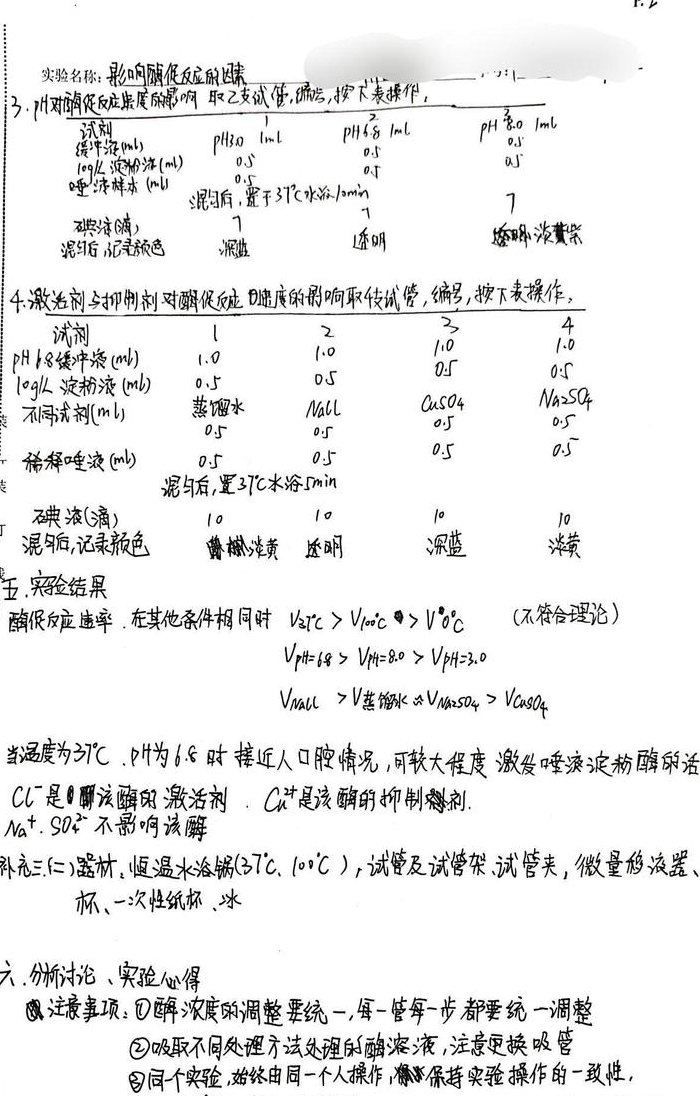 P. 2
实验名称: 影响酶促反应的因素
3. pH对酶促反应速度的影响 取2支试管,编号,按下表操作。
试剂 1 2 3
缓冲液(ml) pH3.0 1ml pH6.8 1ml pH 8.0 1ml
10g/L 淀粉液(ml) 0.5 0.5 0.5
唾液样本 (ml) 0.5 0.5 0.5
混匀后,置于37℃水浴10min
碘液(滴) 7 7 7
混匀后,记录颜色 深蓝 透明 淡黄紫
4.激活剂与抑制剂对酶促反应速度的影响取4支试管,编号,按下表操作。
试剂 1 2 3 4
pH 6.8缓冲液(ml) 1.0 1.0 1.0 1.0
10g/L 淀粉液(ml) 0.5 0.5 0.5 0.5
不同试剂(ml) 蒸馏水 NaCl CuSO4 Na2SO4
0.5 0.5 0.5 0.5
稀释唾液(ml) 0.5 0.5 0.5 0.5
混匀后,置37℃水浴5min
碘液(滴) 10 10 10 10
混匀后,记录颜色 淡黄 透明 深蓝 淡黄
五.实验结果
酶促反应速率.在其他条件相同时 V37℃ > V100℃ > V0℃ (不符合理论)
VpH=6.8 > VpH=8.0 > VpH=3.0
VNaCl > V蒸馏水 ≈ VNa2SO4 > VCuSO4
当温度为37℃.pH为6.8时接近人口腔情况,可较大程度激发唾液淀粉酶的活
Cl⁻是该酶的激活剂.Cu²⁺是该酶的抑制剂.
Na⁺.SO₄²⁻不影响该酶
补充三.(二)器材:恒温水浴锅(37℃、100℃),试管及试管架、试管夹,微量移液器、
杯、一次性纸杯、冰
六.分析讨论、实验心得
注意事项:①酶浓度的调整要统一,每一管每一步都要统一调整
②吸取不同处理方法处理的酶溶液,注意更换吸管
③同个实验,始终由同一个人操作,保持实验操作的一致性.